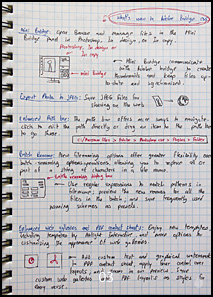 what's new in Adobe Bridge CS5
Mini Bridge: open Browse and manage files in the Mini
Bridge panel in Photoshop, In design, or In copy.
Photoshop, In design or
In copy
Mini Bridge communicates
with Adobe Bridge to create
thumbnails and keep files up-
to-date and synchronised.
mini Bridge
Export Photo to JPEG: Save JPEG files for
sharing on the web
Enhanced Path bar: The path bar offers more ways to navigate.
click to edit the path directly or drag an item to the path bar
to go there.
Batch Rename: New filenaming options offer greater flexibility
with renaming options, allowing you to replace all or
part of a string of characters in a file name.
Use regular expressions to match patterns in
filenames, preview the new names for all the
files in the batch, and save frequently used
naming schemes as presets.
Enhanced web galleries and PDF contact sheets: Enjoy new templates,
including templates by Airtight Interactive, and more options for
customising the appearance of web galleries.
Add custom text and graphical watermarks
to PDF contact sheets, apply finer control over
layouts, and zoom in on preview. Save
custom web galleries and PDF layouts as styles for
easy reuse.